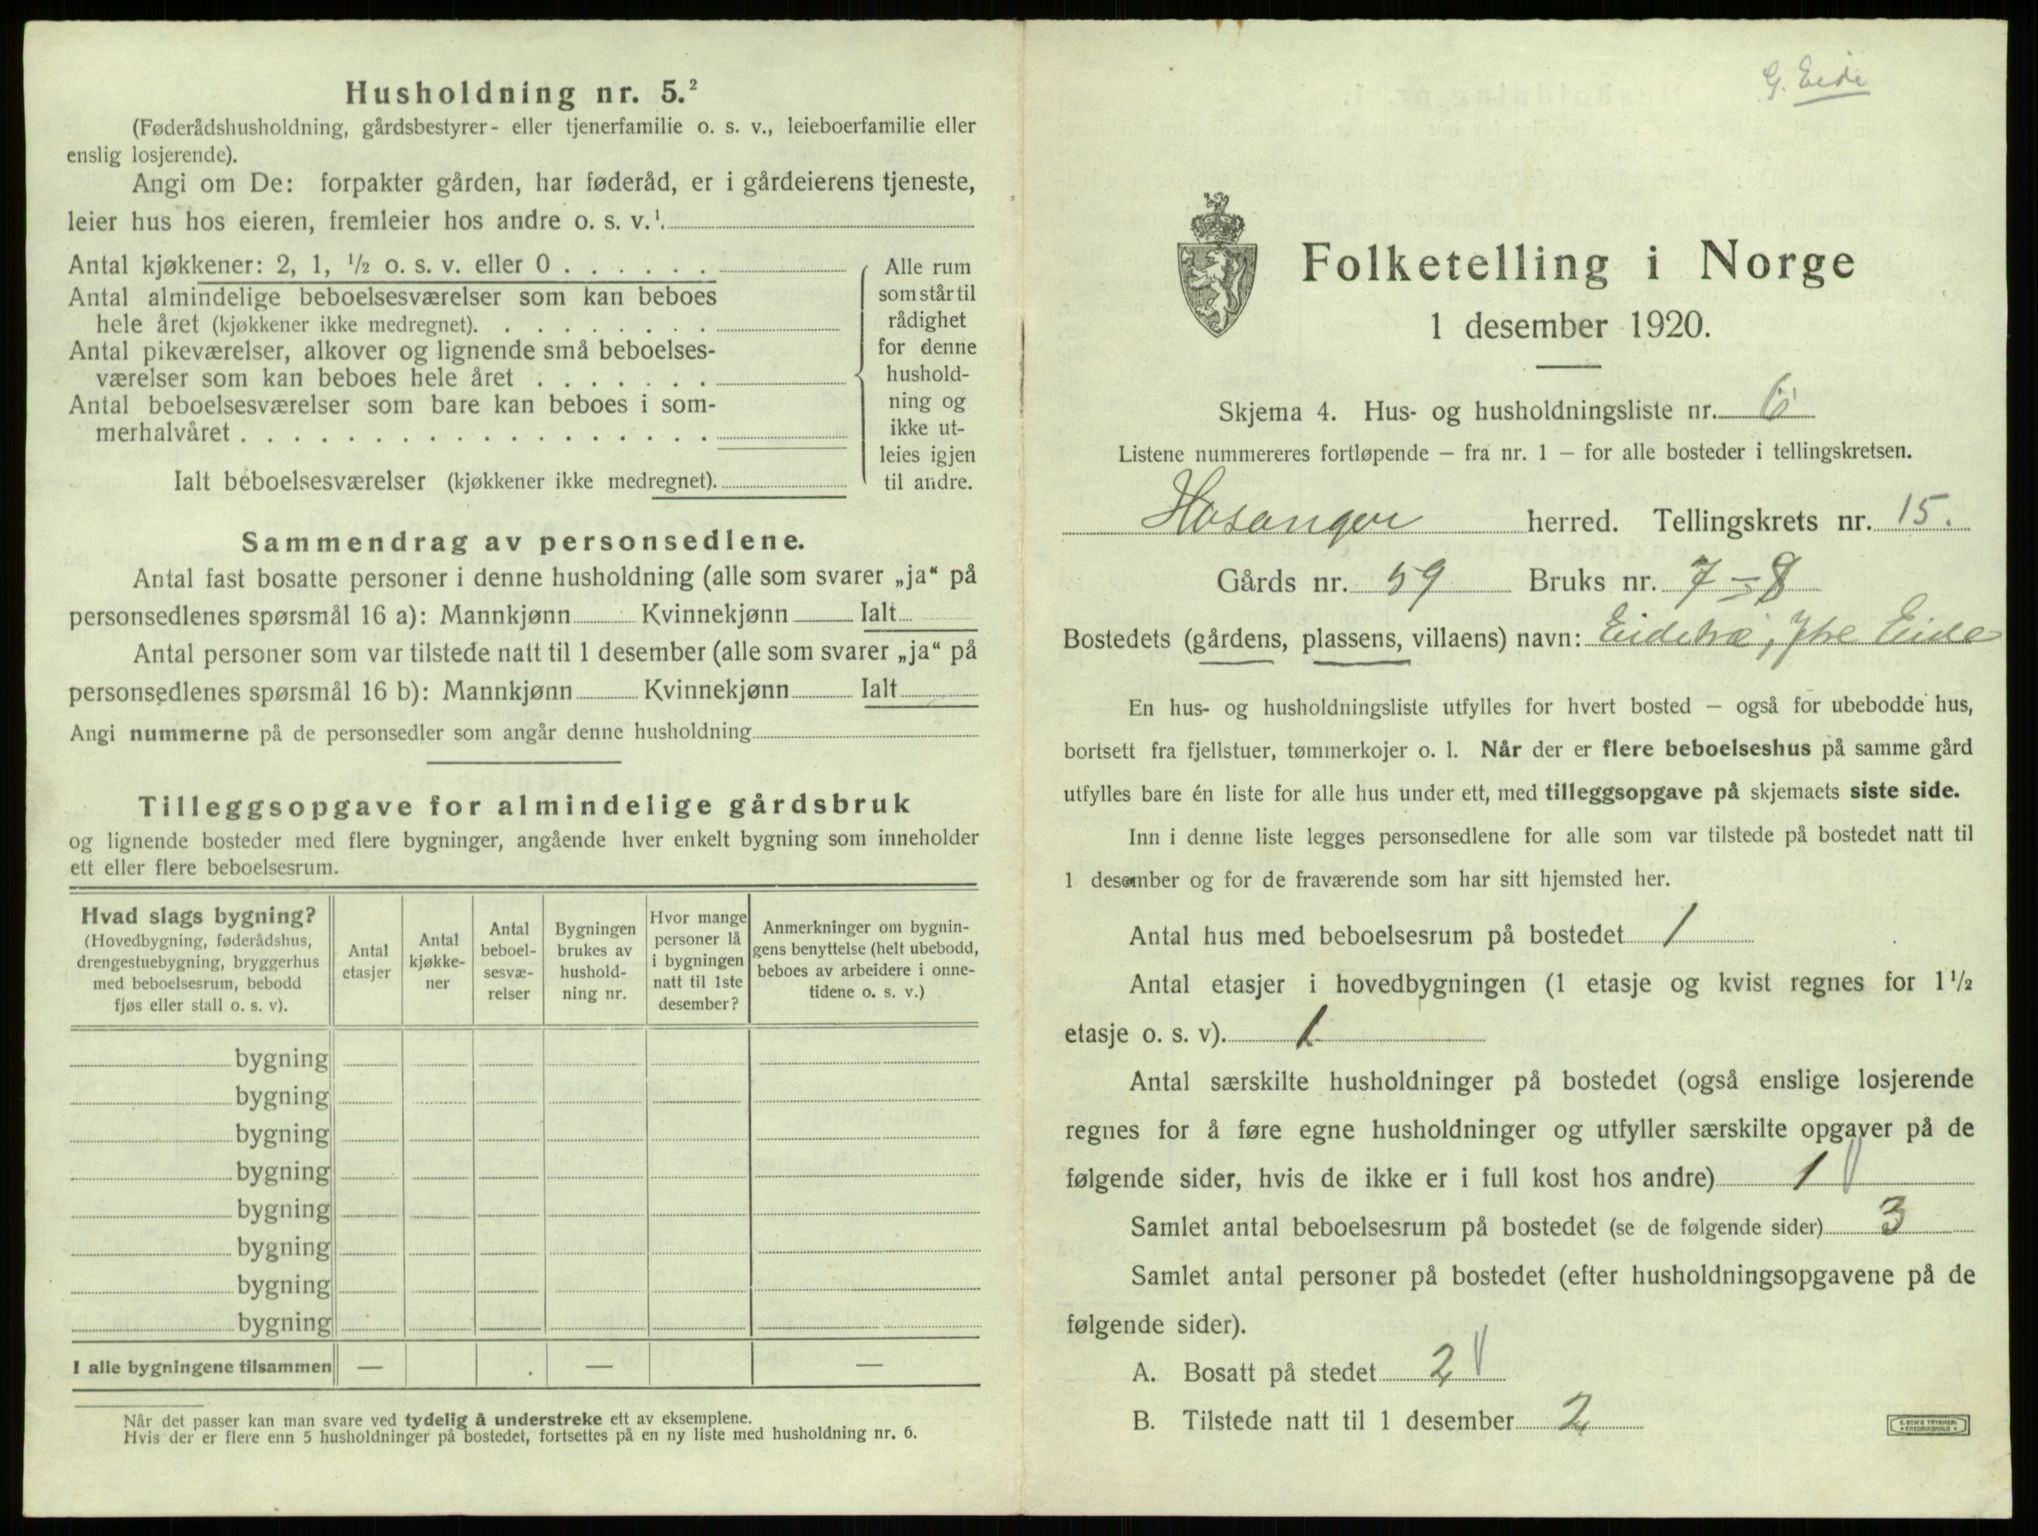 Husholdning nr. 5.²
(Føderådshusholdning, gårdsbestyrer- eller tjenerfamilie o. s. v., leieboerfamilie eller
enslig losjerende).
Angi om De: forpakter gården, har føderåd, er i gårdeierens tjeneste,
leier hus hos eieren, fremleier hos andre o. s. v.¹.
Antal kjøkkener: 2, 1, ½ o. s. v. eller 0 . . . . . .
Antal almindelige beboelsesværelser som kan beboes
hele året (kjøkkener ikke medregnet). . . . . . . . .
Antal pikeværelser, alkover og lignende små beboelses-
værelser som kan beboes hele året . . . . . . .
Antal beboelsesværelser som bare kan beboes i som-
merhalvåret . . . . . . . . . . . . . . . . . .
Ialt beboelsesværelser (kjøkkener ikke medregnet).
Alle rum
som står til
rådighet
for denne
hushold-
ning og
ikke ut-
leies igjen
til andre.
Sammendrag av personsedlene.
Antal fast bosatte personer i denne husholdning (alle som svarer „ja“ på
personsedlenes spørsmål 16 a): Mannkjønn Kvinnekjønn Ialt
Antal personer som var tilstede natt til 1 desember (alle som svarer „ja“ på
personsedlenes spørsmål 16 b): Mannkjønn Kvinnekjønn Ialt
Angi nummerne på de personsedler som angår denne husholdning
Tilleggsopgave for almindelige gårdsbruk
og lignende bosteder med flere bygninger, angående hver enkelt bygning som inneholder
ett eller flere beboelsesrum.
Hvad slags bygning?
(Hovedbygning, føderådshus,
drengestuebygning, bryggerhus
med beboelsesrum, bebodd
fjøs eller stall o. s. v).
Antal
etasjer
Antal
kjøkke-
ner
Antal
beboel-
sesvæ-
relser
Bygningen
brukes av
hushold-
ning nr.
Hvor mange
personer lå
i bygningen
natt til 1ste
desember?
Anmerkninger om bygnin-
gens benyttelse (helt ubebodd,
beboes av arbeidere i onne-
tidene o. s. v.)
bygning
bygning
bygning
bygning
bygning
bygning
bygning
bygning
I alle bygningene tilsammen — — —
Når det passer kan man svare ved tydelig å understreke ett av eksemplene.
Hvis der er flere enn 5 husholdninger på bostedet, fortsettes på en ny liste med husholdning nr. 6.
G. Eide
Folketelling i Norge
1 desember 1920.
Skjema 4. Hus- og husholdningsliste nr. 6
Listene nummereres fortløpende — fra nr. 1 — for alle bosteder i tellingskretsen.
Hosanger herred. Tellingskrets nr. 15.
Gårds nr. 59 Bruks nr. 7 - 8
Bostedets (gårdens, plassens, villaens) navn: Eidetræ, Ytre Eide
En hus- og husholdningsliste utfylles for hvert bosted — også for ubebodde hus,
bortsett fra fjellstuer, tømmerkojer o. l. Når der er flere beboelseshus på samme gård
utfylles bare én liste for alle hus under ett, med tilleggsopgave på skjemaets siste side.
Inn i denne liste legges personsedlene for alle som var tilstede på bostedet natt til
1 desember og for de fraværende som har sitt hjemsted her.
Antal hus med beboelsesrum på bostedet 1
Antal etasjer i hovedbygningen (1 etasje og kvist regnes for 1½
etasje o. s. v). 1
Antal særskilte husholdninger på bostedet (også enslige losjerende
regnes for å føre egne husholdninger og utfyller særskilte opgaver på de
følgende sider, hvis de ikke er i full kost hos andre) 1
Samlet antal beboelsesrum på bostedet (se de følgende sider) 3
Samlet antal personer på bostedet (efter husholdningsopgavene på de
følgende sider).
A. Bosatt på stedet 2
B. Tilstede natt til 1 desember 2